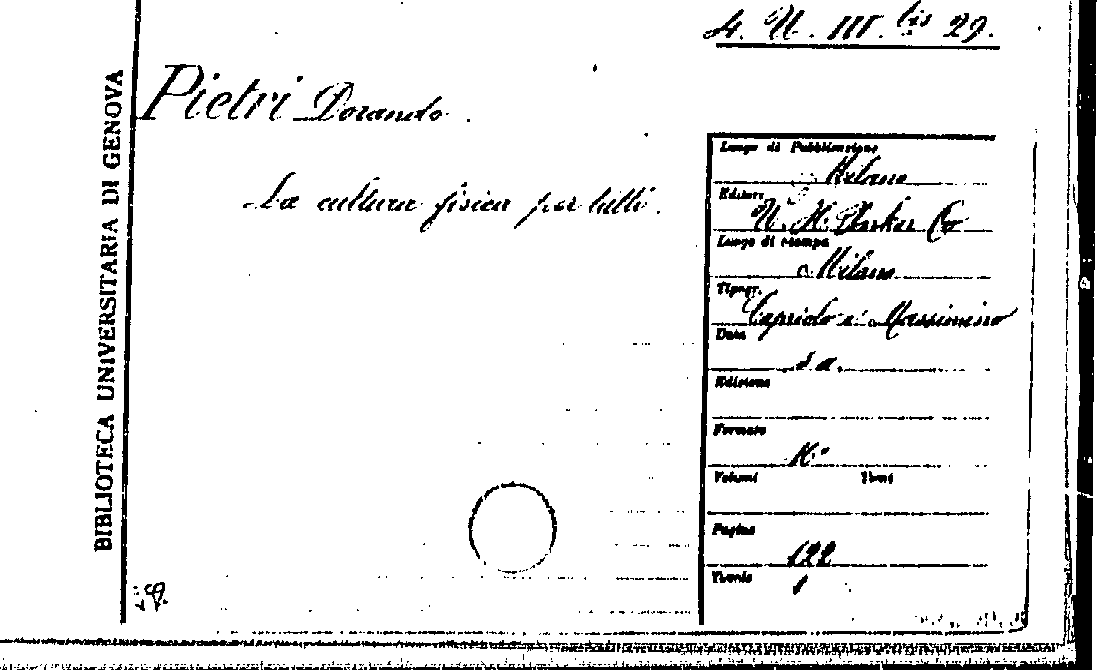 4. U. III. bis 29.
BIBLIOTECA UNIVERSITARIA DI GENOVA
Pietri Dorando.
La cultura fisica per tutti.
Luogo di Pubblicazione
Milano
Editore
Luogo di stampa
Milano
Tipogr.
Capriolo e Massimino
Data
s. a.
Edizione
Formato
Volumi Tomi
Pagine
122
Tavole
1